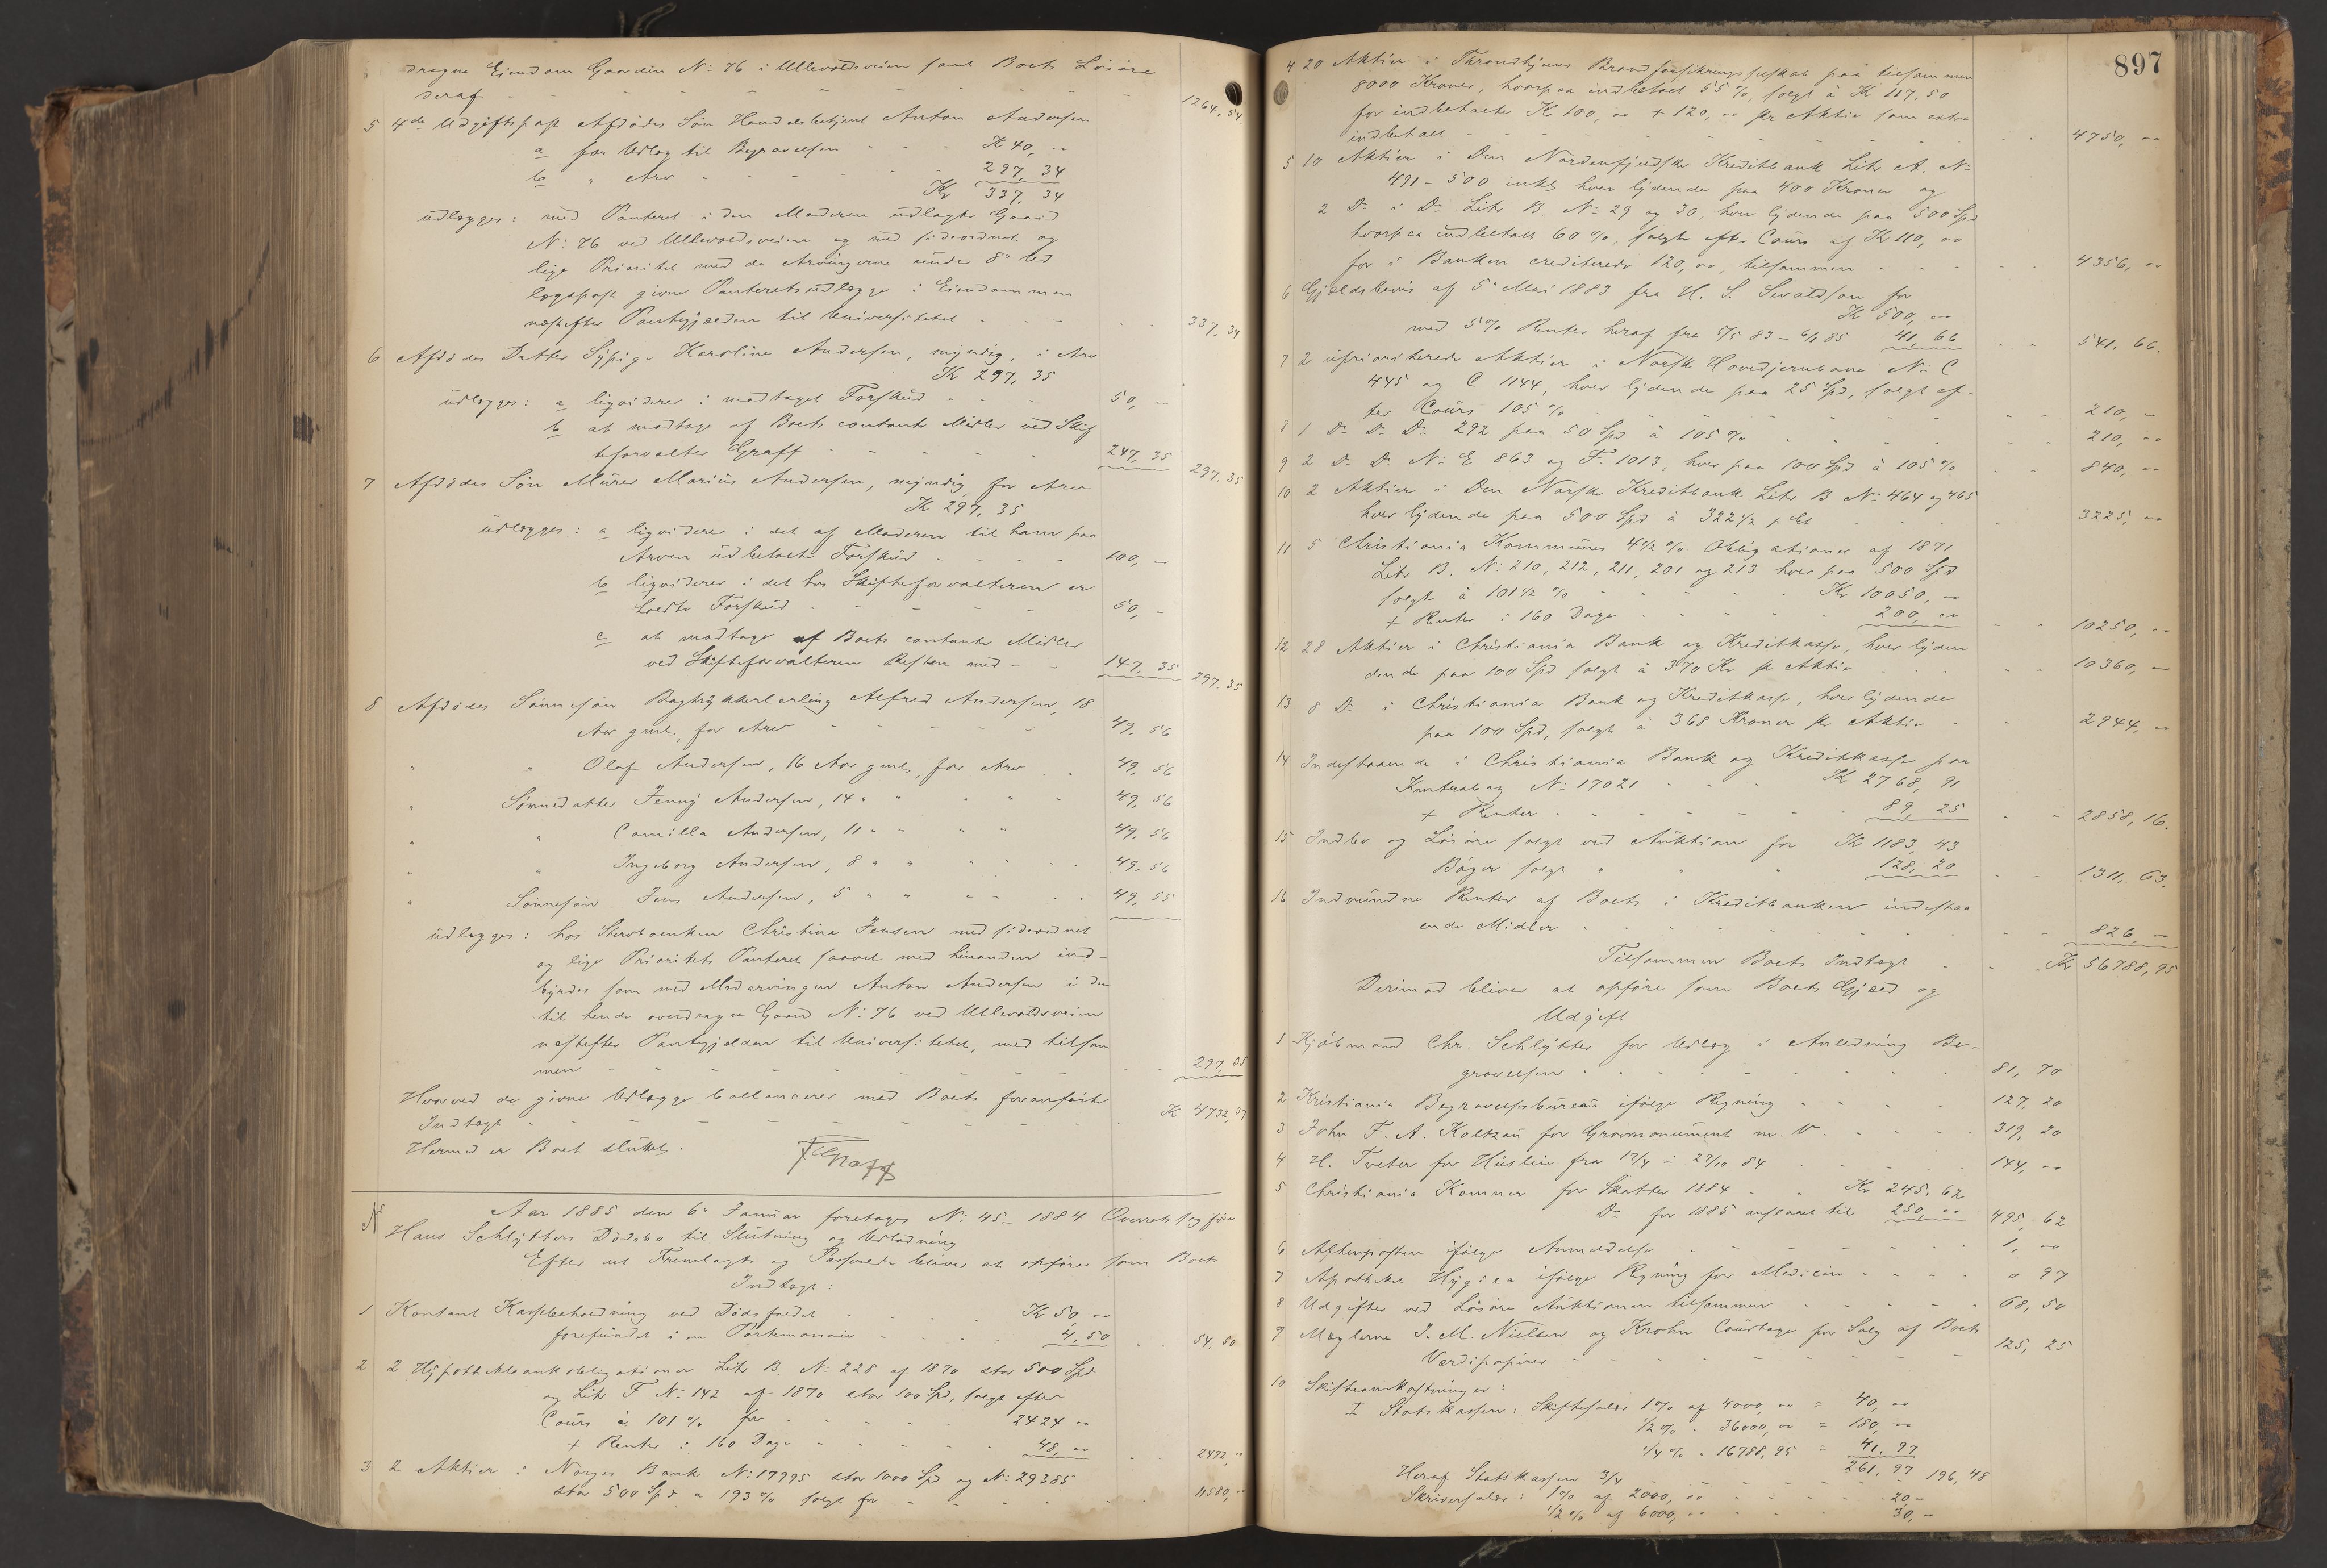 dragne Eiendom Gaarden No 76 i Ullevoldsveien samt Boets Løsøre
deraf - - - 1264,54
5 4de Udgiftspost Afdødes Søn Handelsbetjent Anton Andersen
a for Udlæg til Begravelsen - - - K 40, "
b " Arv - - - 297, 34
Kr 337, 34
udlægges: med Panteret i den Moderen udlagte Gaard
No 76 ved Ullevoldsveien og med sideordnet og
lige Prioritet med de Arvingerne under 8de Ud
lægspost givne Panteretsudlægge i Eiendommen
næstefter Pantegjælden til Universitetet - - - 337, 34
6 Afdødes Datter Sypige Karoline Andersen, myndig, i Arv
K 297, 35
udlægges: a liqviderer i modtaget Forskud - - - 50, "
b at modtage af Boets contante Midler ved Skif
teforvalter Graff - - - 247, 35 297.35
7 Afdødes Søn Murer Marius Andersen, myndig, for Arv
K 297, 35
udlægges: a liqviderer i det af Moderen til ham paa
Arven udbetalte Forskud - - - 100, "
b liqviderer i det hos Skifteforvalteren er
holdte Forskud - - - 50, -
c at modtage af Boets contante Midler
ved Skifteforvalteren Resten med - - 147, 35 297.35
8 Afdødes Sønnesøn Bogtrykkerlærling Alfred Andersen, 18
Aar gml, for Arv - - - 49, 56
" " Olaf Andersen, 16 Aar gml, for Arv - - 49, 56
" Sønnedatter Jenny Andersen, 14 " " " " 49, 56
" " Camilla Andersen, 11 " " " " 49, 56
" " Ingeborg Andersen, 8 " " " " 49, 56
" Sønnesøn Jens Andersen, 5 " " " " 49, 55
udlægges: hos Stervboenken Christine Jensen med sideordnet
og lige Prioritets Panteret saavel med hinanden ind-
byrdes som med Medarvingen Anton Andersen i den
til hende overdragne Gaard No 76 ved Ullevoldsveien
næstefter Pantegjælden til Universitetet, med tilsam
men - - - 297, 35
Hvorved de givne Udlægge ballancerer med Boets foranførte
Indtægt - - - K 4732,37
Hermed er Boet sluttet.
Graff
Aar 1885 den 6te Januar foretages No 45 - 1884 Overretssagfører
Hans Schlytters Dødsbo til Slutning og Udlodning
Efter det Fremlagte og Passerede bliver at opføre som Boets
Indtægt:
1 Kontant Kassebeholdning ved Dødsfaldet K 50, "
forefundet i en Portemonaie - - - 4, 50 54. 50
2 2 Hypothekbankobligationer Litr B. No 228 af 1870 stor 500 Spd
og Litr F No 142 af 1870 stor 100 Spd, solgt efter
Cours à 101 % for - - - 2424 "
+ Renter i 160 Dage - - - 48, " 2472, "
3 2 Aktier i Norges Bank No 17995 stor 1000 Spd og No 29385
stor 500 Spd à 193 % solgt for - - - 11580, "
897
4 20 Aktier i Throndhjems Brandforsikringsselskab paa tilsammen
8000 Kroner, hvorpaa indbetalt 55 %, solgt à Kr 117.50
for indbetalte K 100, " + 120, " pr Aktie som extra
indbetalt - - - 4750, "
5 10 Aktier i Den Nordenfjeldske Kreditbank Litr A. No
491 - 500 inkl, hver lydende paa 400 Kroner og
2 Do i Do Litr B. No 29 og 30, hver lydende paa 500 Spd
hvorpaa indbetalt 60 %, solgte eft. Cours af Kr 110, "
for i Banken crediterede 120, ", tilsammen - - - 4356, "
6 Gjældsbevis af 5te Mai 1883 fra H. S. Sivaldson for
K 500, "
med 5 % Renter heraf fra 5/5 83 - 6/1 85 41, 66 541. 66.
7 2 uprioriterede Aktier i Norsk Hovedjernbane No C
445 og C 1144, hver lydende paa 25 Spd, solgt ef-
ter Cours 105 % 210, "
8 1 Do Do Do 292 paa 50 Spd à 105 % 210, "
9 2 Do Do No E 863 og F. 1013, hver paa 100 Spd à 105 % 840, "
10 2 Aktier i Den Norske Kreditbank Litr B No 464 og 465
hver lydende paa 500 Spd à 322 1/2 p Ct 3225, "
11 5 Christiania Kommunes 4 1/2 % Obligationer af 1871
Litr B. No 210, 212, 211, 201 og 213 hver paa 500 Spd
solgt à 101 1/2 % Kr 10050, "
+ Renter i 160 Dage 200, " 10250, "
12 28 Aktier i Christiania Bank og Kreditkasse, hver lyden
dende paa 100 Spd solgt à 370 Kr pr Aktie 10360, "
13 8 Do i Christiania Bank og Kreditkasse, hver lydende
paa 100 Spd, solgt à 368 Kroner pr Aktie 2944, "
14 Indestaaende i Christiania Bank og Kreditkasse paa
Kontrabog No 17021 K 2768, 91
+ Renter 89, 25 2858, 16.
15 Indbo og Løsøre solgt ved Auktion for K 1183, 43
Bøger solgt " " 128, 20 1311. 63.
16 Indvundne Renter af Boets i Kreditbanken indestaa
ende Midler 826, "
Tilsammen Boets Indtægt K 56788,95
Derimod bliver at opføre som Boets Gjæld og
Udgift
1 Kjøbmand Chr. Schlytter for Udlæg i Anledning Be-
gravelsen 81, 70
2 Kristiania Begravelsesbureau ifølge Regning 127, 20
3 John F. A. Koltzau for Gravmonument m. V. 319, 20
4 H. Tveter for Husleie fra 12/4 - 27/10 84 144, "
5 Christiania Kemner for Skatter 1884 Kr 245. 62
Do for 1885 anslaaet til 250, " 495, 62
6 Aftenposten ifølge Anmeldelse 1, "
7 Apotheket Hygiea ifølge Regning for Medicin 0 97
8 Udgifter ved Løsøre Auktionen tilsammen 68, 50
9 Mæglerne J. M. Nielsen og Krohn Courtage for Salg af Boets
Verdipapirer 125, 25
10 Skifteomkostninger:
I Statskassen: Skiftesalær 1 % af 4000, " = 40, "
1/2 % - 36000, " = 180, "
1/4 % - 16788, 95 = 41. 97
261. 97
Heraf Statskassen 3/4 196, 48
Skriversalær: 1 % af 2000, " 20 -
1/2 % af 6000, " 30, -